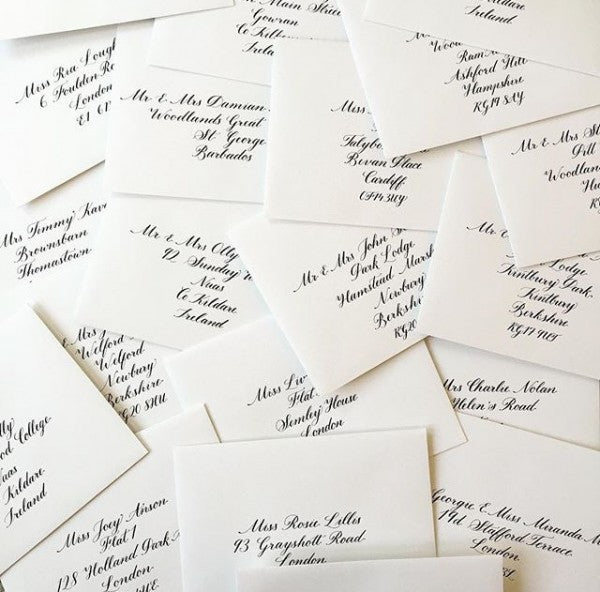 Main Street
Gowran
Co Kil
Irela
Ireland
Miss Ria Lough
6 Poulden Ro
London
E1 6
Mr & Mrs Damian
Woodlands Great
St George
Barbados
Miss
Tulybo
Bevan Place
Cardiff
CF14 3UY
Ashford Hill
Hampshire
RG19 8AY
Mr & Mrs S
Dill
Woodlan
Hu
Mrs Timmy Kav
Brownsbarn
Thomastown
Mr & Mrs Olly
92 Sunday
Naas
Co Kildare
Ireland
Mr & Mrs John S
Park Lodge
Hamstead Marsh
Newbury
Berkshire
RG20
Mr & M
Lodge
Kintbury Park
Kintbury
Berkshire
RG17 9UT
& Mrs J
Welford
Welford
Newbury
Berkshire
RG20 8HU
Miss Liv
Flat
Semley House
London
Mrs Charlie Nolan
Helen's Road
lly
od College
aas
Kildare
Ireland
Miss Joey Anson
Flat 1
128 Holland Park A
London
Miss Rosie Lilles
93 Grayshott Road
London
Georgie & Miss Miranda M
19d Stafford Terrace
London